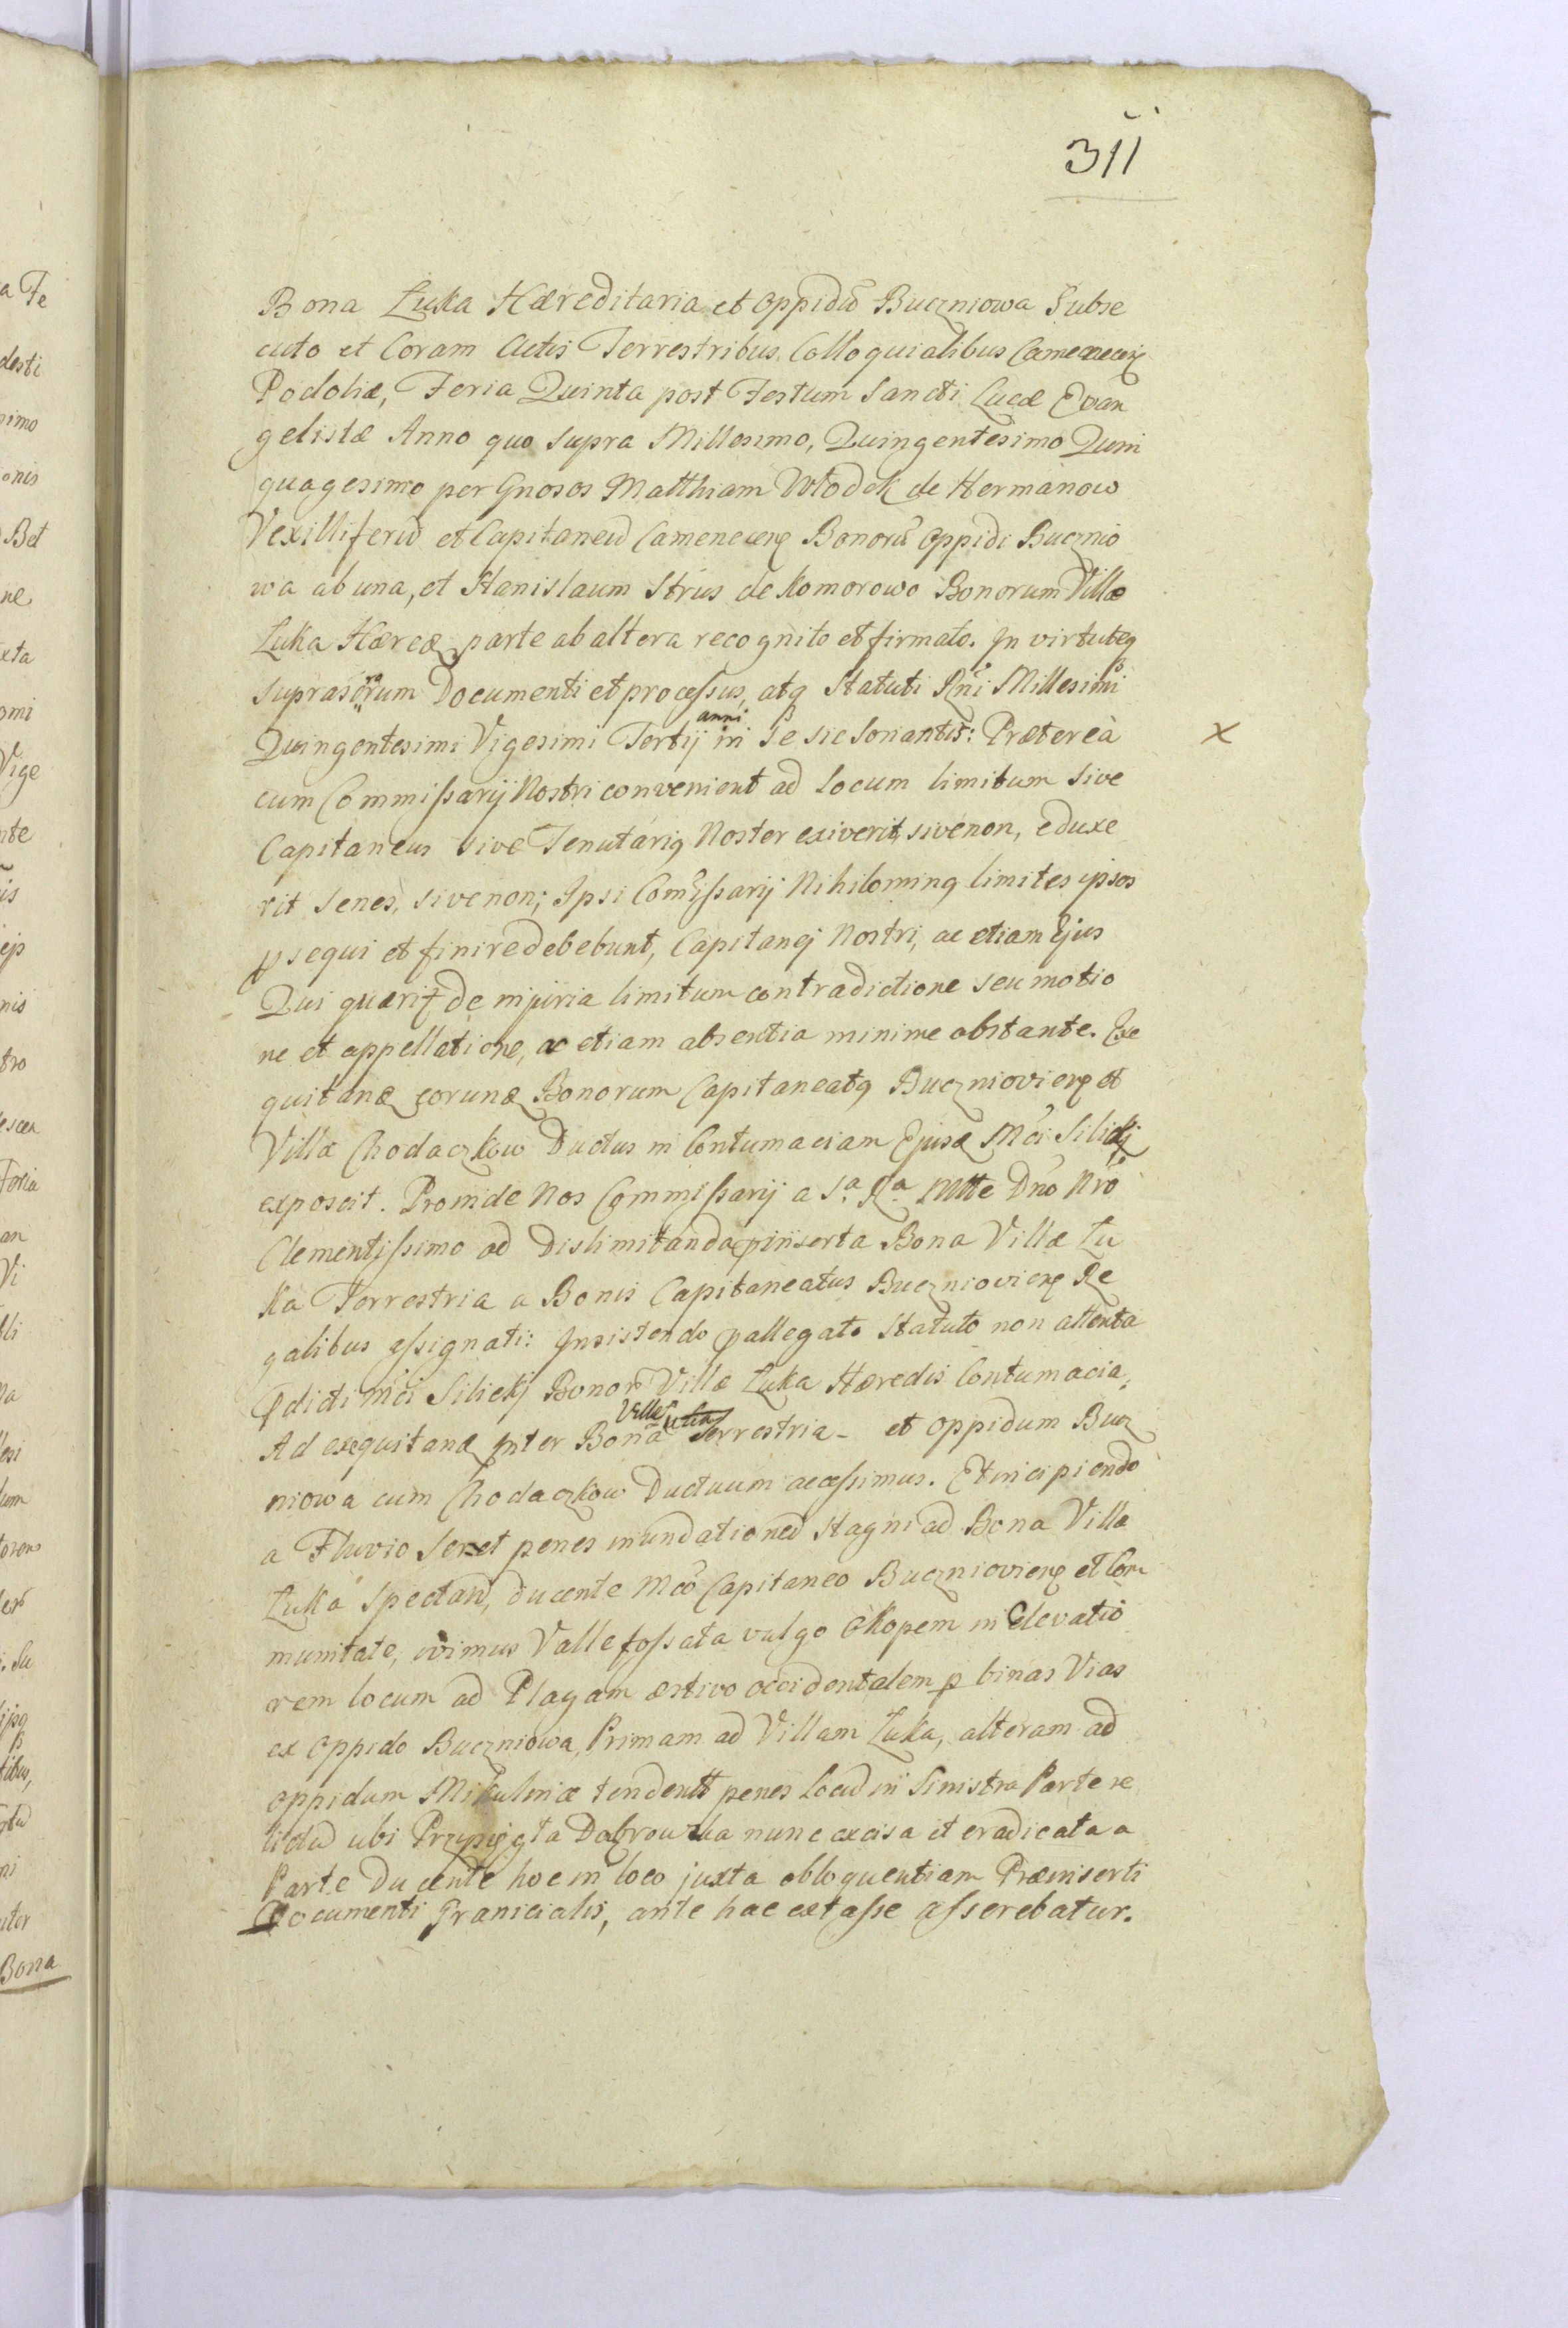 311
Bona Łuka Hæreditaria et Oppidū Buczniowa Subse
cuto et Coram Actis Terrestribus Colloquialibus
Podoliæ, Feria Quinta post Festum Sancti Lucæ Evan
gelistæ Anno quo supra Millesimo, Quingentesimo Quin
quagesimo per Gnosos Matthiam Włodek de Hermanow
Vexilliferū et Capitaneū Camenecen Bonorū Oppidi Bucznio
wa ab una, et Stanislaum Strus de Komorowo Bonorum Villæ
Łuka Hæred parte ab altera recognito et firmato. In virtuteq
Documenti et processus, atq Statuti Rñi Millesimi
Quingentesimi Vigesimi Tertij anni in se sic sonantis: Prætereà
cum Commissarij Nostri convenient ad Locum limitum sive
Capitaneus sive Tenutariq Noster exiverit, sive non, eduxe
rit senes, sive non; Ipsi Comissarij Nihilominq limites ipsos
psequi et finire debebunt, Capitanej Nostri, ac etiam Ejus
Qui quærit de injuria limitum contradictione seu motio
ne et appellatione, ac etiam absentia minime obstante. Exe
quitand eorund Bonorum Capitaneatq Buczniovien et
Villæ Chodaczkow Ductus in Contumaciam Ejusd Mci Silickj
exposcit. Proinde Nos Commissarij a Sa Ra Mtte Dno Nro
Clementissimo ad Dislimitanda pinserta Bona Villæ Łu
ka Terrestria a Bonis Capitaneatus Buczniovien Re
galibus assignati: Insistendo pallegato Statuto non attenta
pdicti Mci Silickj Bonor Villæ Łuka Hæredis Contumacia,
Ad exequitand Inter Bona Villæ Terrestria - et Oppidum Bucz
niowa cum Chodaczkow Ductuum accessimus. Et incipiendo
a Fluvio Seret penes inundationeū Stagni ad Bona Villæ
Łuka Spectan, ducente Mco Capitaneo Buczniovien et Com
munitate, ivimus Valle fossata vulgo Okopem in Elevatio
rem locum ad Plagam æstivo occidentalem p binas Vias
ex Oppido Buczniowa, Primam ad Villam Łuka, alteram ad
Oppidum Mikulince tendentt penes Locū in Sinistra Parte re
lictū ubi Przysięgła Dąbrowka nunc excisa et eradicata a
Parte Ducente hoc in loco juxta obloquentiam Præinserti
Documenti Granicialis, ante hac extasse asserebatur.